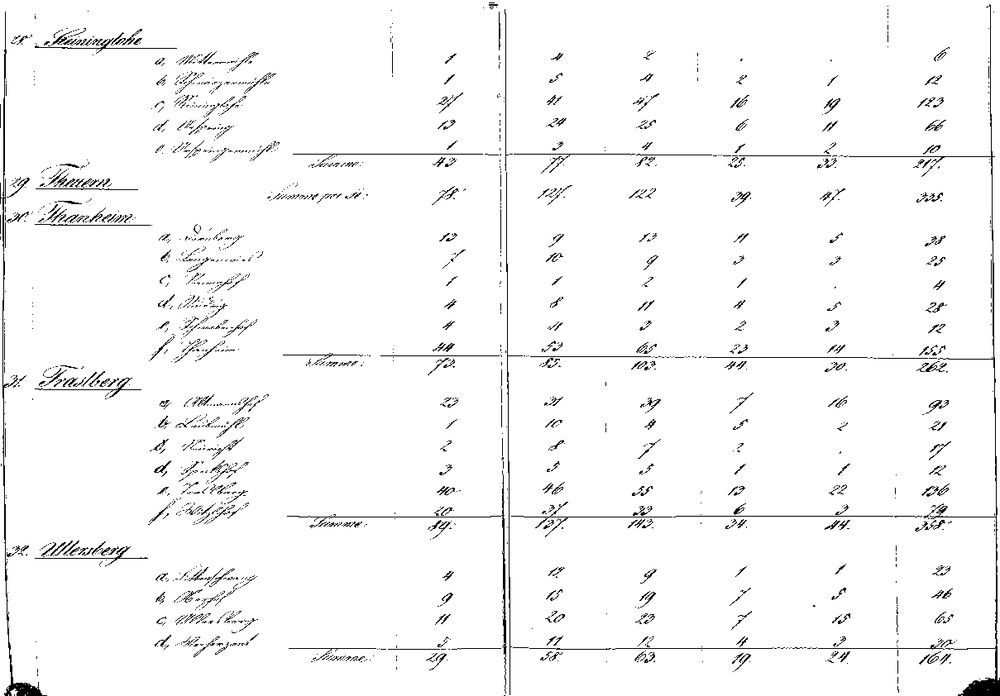 28. Steininglohe
a, Mittermühle 1 4 2 . . 6
b, Schwärzermühle 1 5 4 2 1 12
c, Steiningloh 27 41 47 16 19 123
d, Urspring 13 24 25 6 11 66
e, Urspringermühl 1 3 4 1 2 10
Summe: 43 77. 82. 25. 33. 217.
29. Theuern
Summe per se: 78. 127. 122 39. 47. 335.
30. Thanheim
a, 13 9 13 11 5 38
b, Langenwies 7 10 9 3 3 25
c, 1 1 2 1 . 4
d, 4 8 11 4 5 28
e, 4 4 3 2 3 12
f, Thanheim 44 53 65 23 14 155
Summe: 73. 85. 103. 44. 30. 262.
31. Traslberg
a, Altmannshof 23 31 39 7 16 93
b, Laubmühl 1 10 4 5 2 21
c, Neuricht 2 8 7 2 . 17
d, 3 5 5 1 1 12
e, Traslberg 40 46 55 13 22 136
f, Witzlhof 20 37 33 6 3 79
Summe: 89. 137. 143. 34. 44. 358.
32. Ullersberg
a, 4 12 9 1 1 23
b, 9 15 19 7 5 46
c, Ullersberg 11 20 23 7 15 65
d, 5 11 12 4 3 30
Summe: 29. 58. 63. 19. 24. 164.